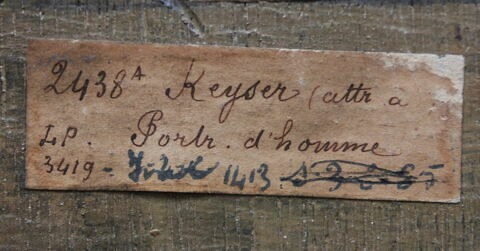 2438ᴬ Keyser (attr a
L.P. Portr. d'homme
3419 - 1413.